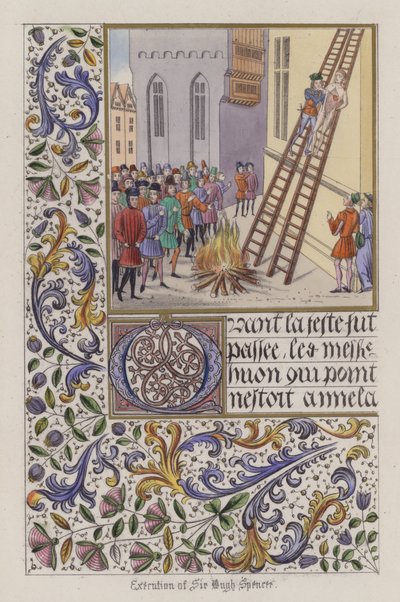 Quant la feste fut
passee, les messe
nuon qui point
nestoit amela
Execution of Sir Hugh Spencer.